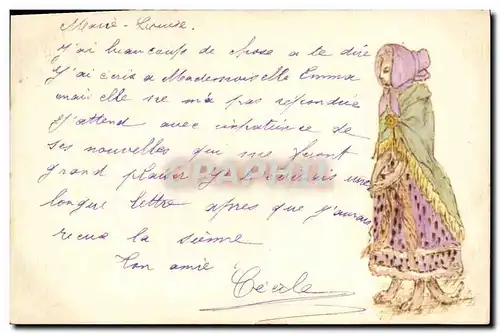 Marie-Louise.
J'ai beaucoup de chose a te dire
J'ai écris a Mademoiselle Emma
mais elle ne m'a pas repondue
J'attend avec inpatience de
ses nouvelles qui me feront
grand plaisir Je t'écrirais une
longue lettre apres que j'aurais
recue la sienne
Ton amie
Cécile